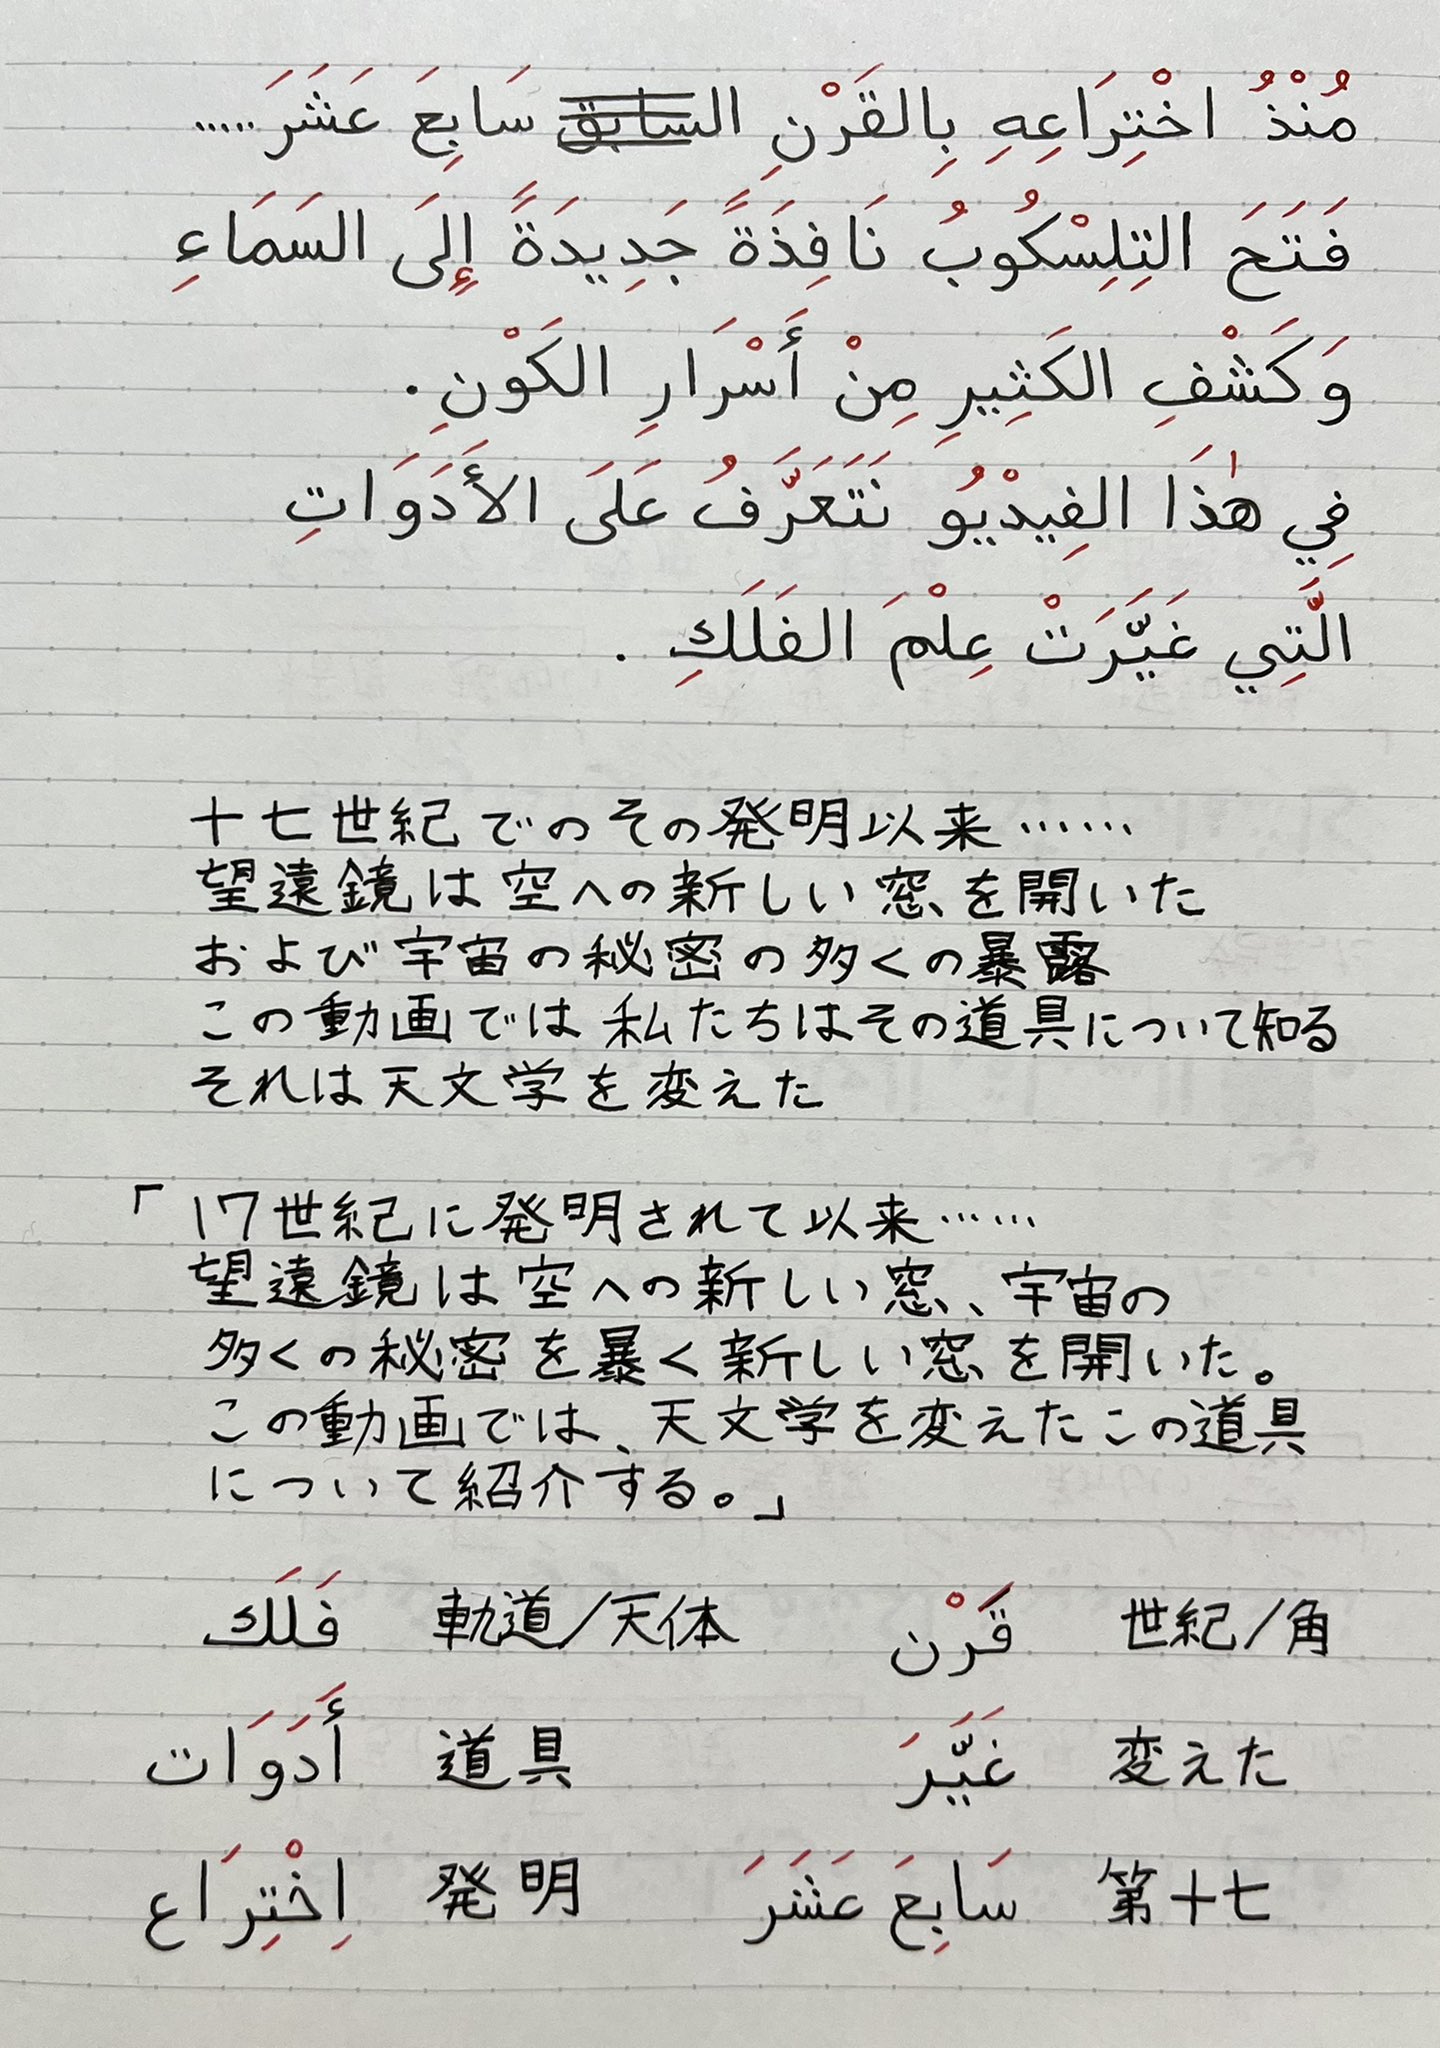 مُنْذُ اخْتِرَاعِهِ بِالقَرْنِ السابق سَابِعَ عَشَرَ.....
فَتَحَ التِلِسْكُوبُ نَافِذَةً جَدِيدَةً إِلَى السَمَاءِ
وَكَشْفِ الكَثِيرِ مِنْ أَسْرَارِ الكَوْنِ.
فِي هٰذَا الفِيدْيُو نَتَعَرَّفُ عَلَى الأَدَوَاتِ
الَّتِي غَيَّرَتْ عِلْمَ الفَلَكِ.
十七世紀でのその発明以来……
望遠鏡は空への新しい窓を開いた
および宇宙の秘密の多くの暴露
この動画では私たちはその道具について知る
それは天文学を変えた
「17世紀に発明されて以来……
望遠鏡は空への新しい窓、宇宙の
多くの秘密を暴く新しい窓を開いた。
この動画では、天文学を変えたこの道具
について紹介する。」
فَلَك 軌道/天体 قَرْن 世紀/角
أَدَوَات 道具 غَيَّرَ 変えた
اِخْتِرَاع 発明 سَابِعَ عَشَرَ 第十七